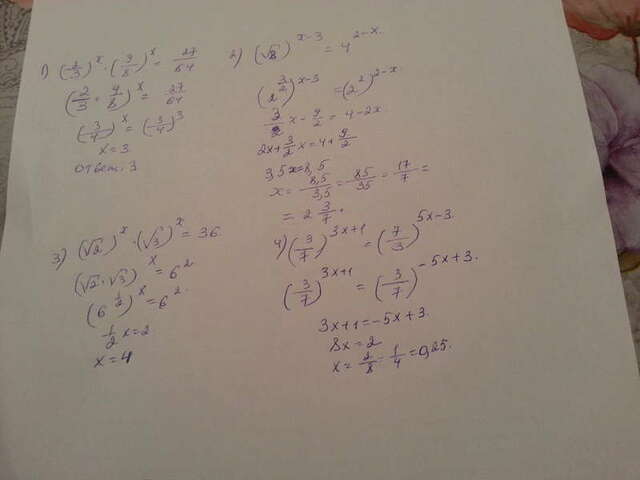 1) (2/3)^x · (9/8)^x = 27/64
(2/3 · 9/8)^x = 27/64
(3/4)^x = (3/4)^3
x = 3
ответ. 3
2) (√8)^(x-3) = 4^(2-x).
(2^(3/2))^(x-3) = (2^2)^(2-x)
3/2 x - 9/2 = 4-2x
2x + 3/2 x = 4 + 9/2
3,5x = 8,5
x = 8,5/3,5 = 85/35 = 17/7 =
= 2 3/7.
3) (√2)^x · (√3)^x = 36
(√2 · √3)^x = 6^2
(6^(1/2))^x = 6^2.
1/2 x = 2
x = 4
4) (3/7)^(3x+1) = (7/3)^(5x-3.)
(3/7)^(3x+1) = (3/7)^(-5x+3.)
3x+1 = -5x+3.
8x = 2
x = 2/8 = 1/4 = 0,25.